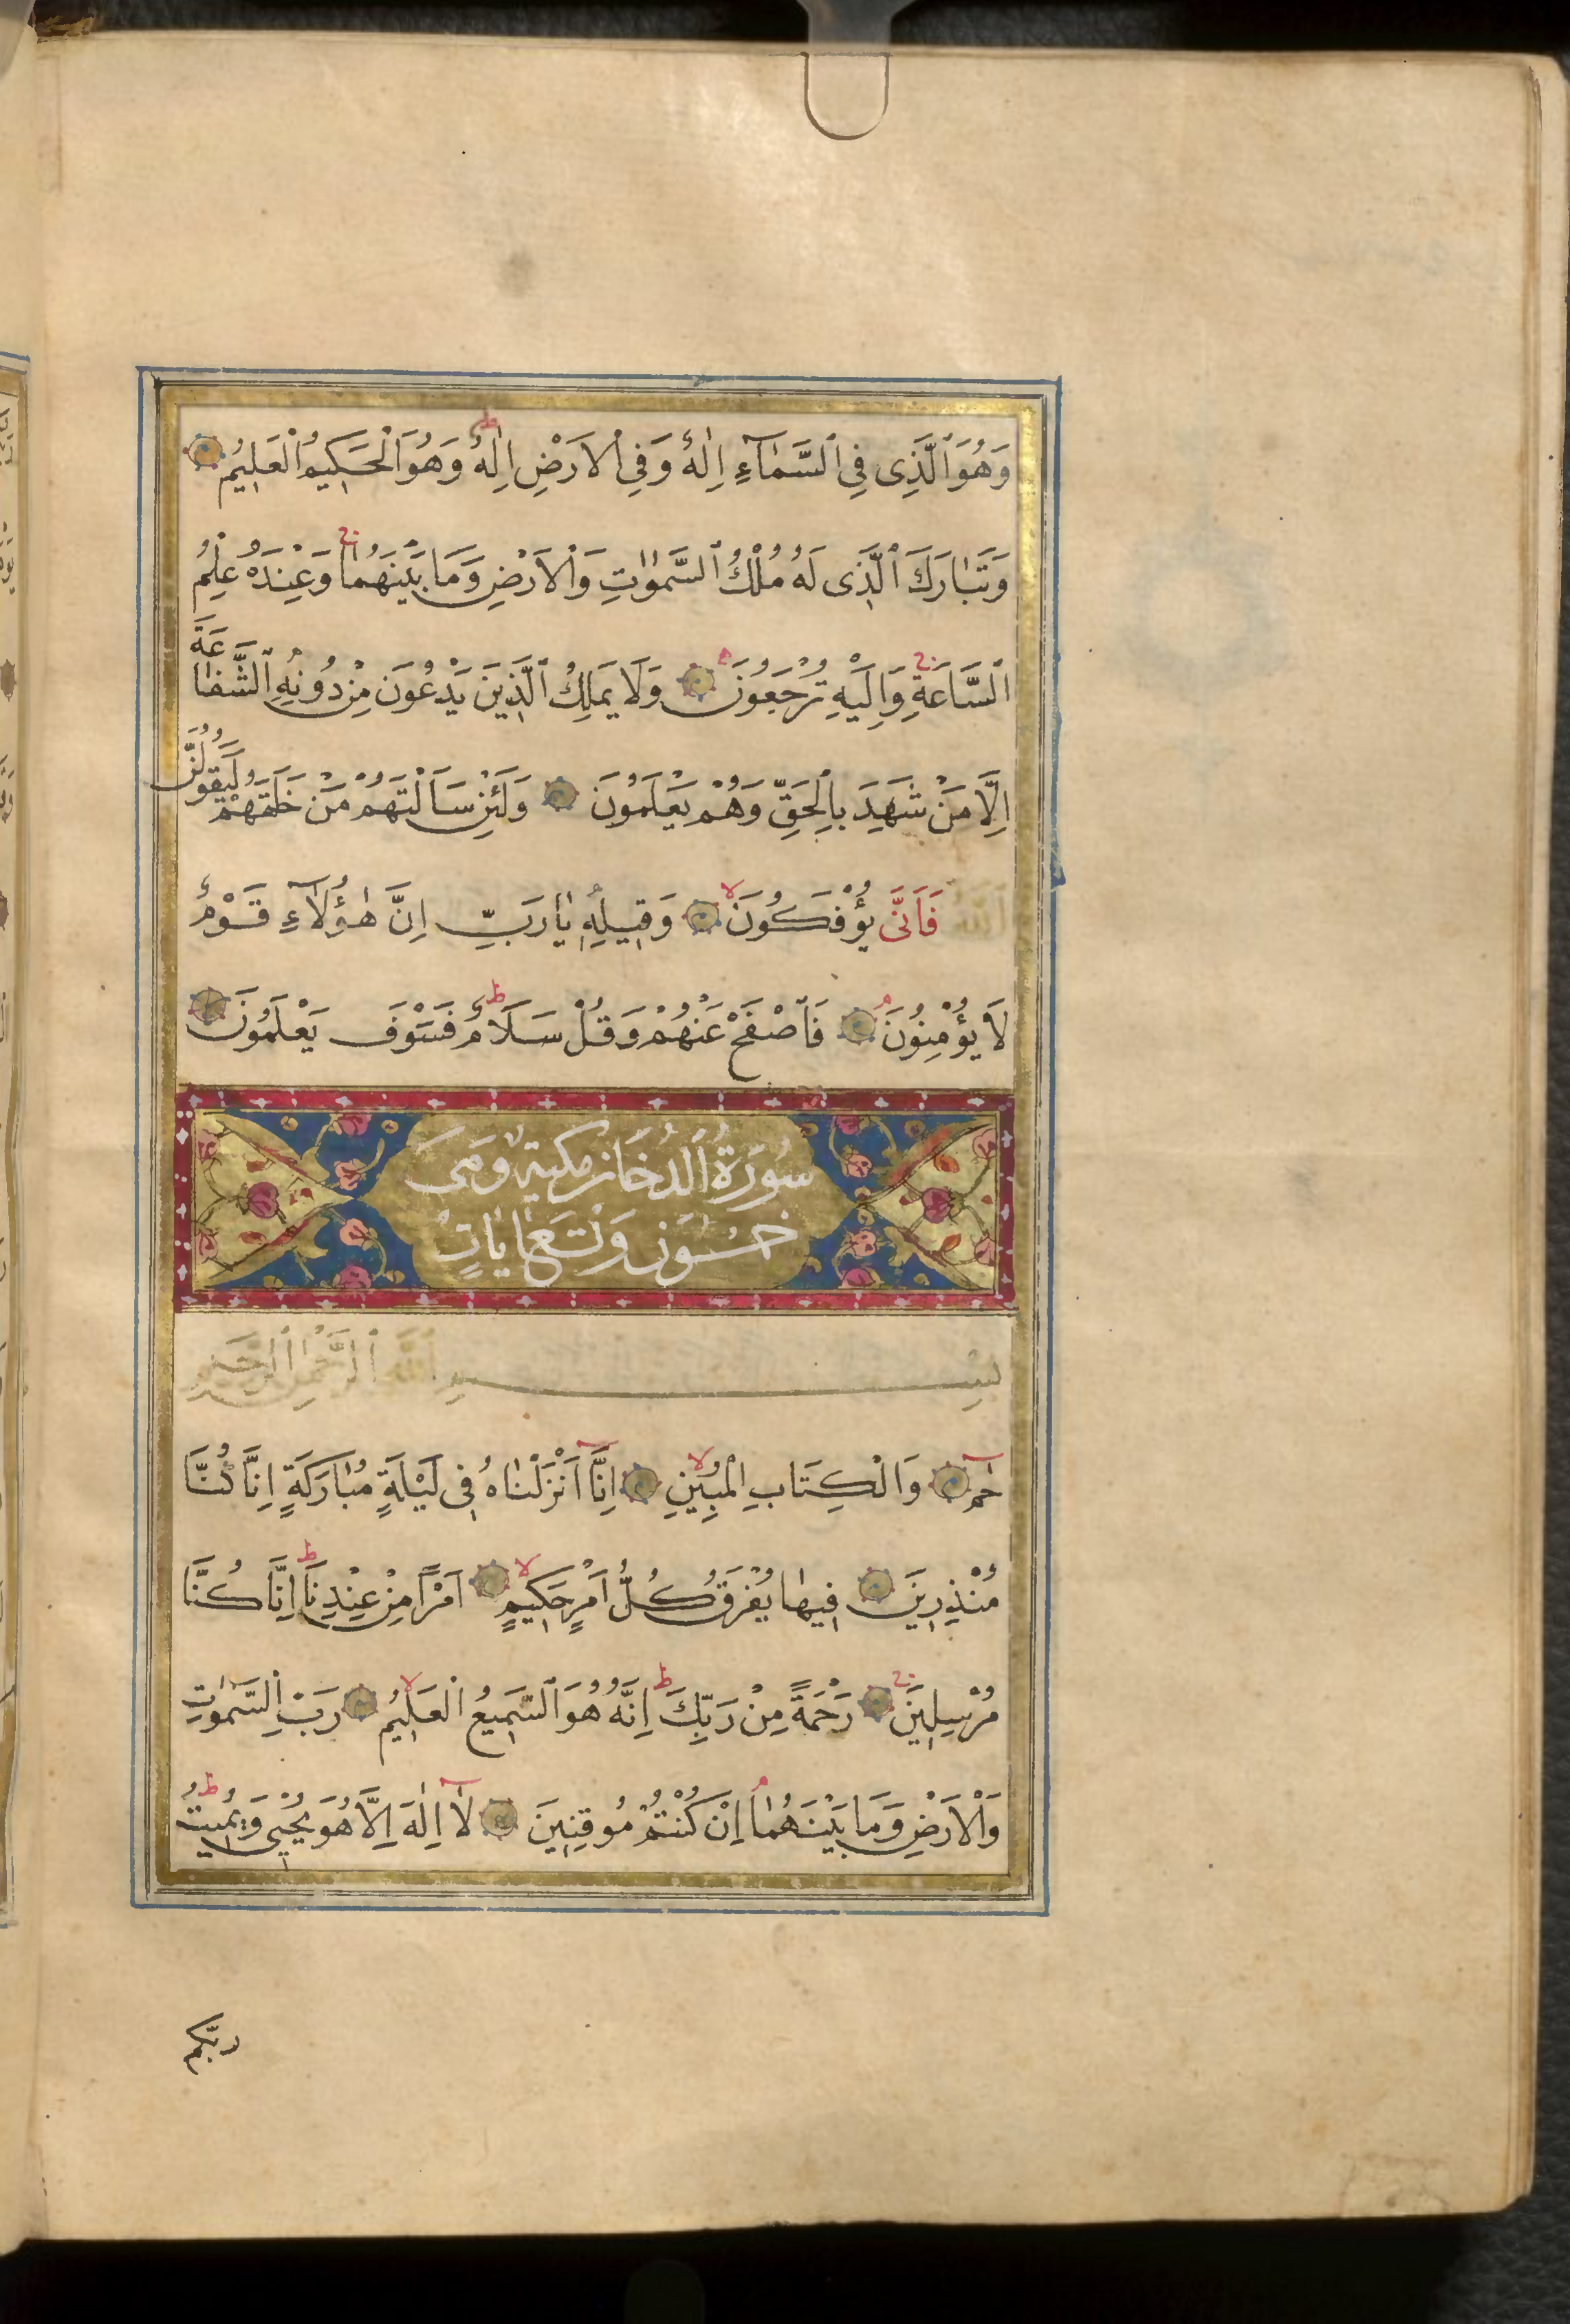 وَهُوَ ٱلَّذِى فِى ٱلسَّمَآءِ اِلٰهٌ وَفِى ٱلْاَرْضِ اِلٰهٌ ط وَهُوَ ٱلْحَكِيمُ ٱلْعَلِيمُ
وَتَبٰارَكَ ٱلَّذِى لَهُ مُلْكُ ٱلسَّمٰوٰاتِ وَٱلْاَرْضِ وَمَا بَيْنَهُمٰا ج وَعِنْدَهُ عِلْمُ
ٱلسَّاعَةِ ج وَاِلَيْهِ تُرْجَعُونَ وَلَا يَمْلِكُ ٱلَّذِينَ يَدْعُونَ مِنْ دُونِهِ ٱلشَّفٰاعَةَ
اِلَّا مَنْ شَهِدَ بِالْحَقِّ وَهُمْ يَعْلَمُونَ وَلَئِنْ سَاَلْتَهُمْ مَنْ خَلَقَهُمْ لَيَقُولُنَّ
ٱللّٰهُ فَاَنَّى يُؤْفَكُونَ لا وَقِيلِهِ يٰارَبِّ اِنَّ هٰؤُلَآءِ قَوْمٌ
لَا يُؤْمِنُونَ م فَٱصْفَحْ عَنْهُمْ وَقُلْ سَلَامٌ ط فَسَوْفَ يَعْلَمُونَ
سُورَةُ ٱلدُخَان مكية وهى
خمسون وتسع اٰيٰات
بِسْمِ ٱللّٰهِ ٱلرَّحْمٰنِ ٱلرَّحِيمِ
حٰم وَالْكِتَابِ الْمُبِينِ لا اِنَّآ اَنْزَلْنٰاهُ فِى لَيْلَةٍ مُبٰارَكَةٍ اِنَّا كُنَّا
مُنْذِرِينَ فِيهٰا يُفْرَقُ كُلُّ اَمْرٍ حَكِيمٍ لا اَمْرًا مِنْ عِنْدِنَا ط اِنَّا كُنَّا
مُرْسِلِينَ ج رَحْمَةً مِنْ رَبِّكَ ط اِنَّهُ هُوَ ٱلسَّمِيعُ ٱلْعَلِيمُ لا رَبِّ ٱلسَّمٰوٰتِ
وَٱلْاَرْضِ وَمَا بَيْنَهُمٰا م اِنْ كُنْتُمْ مُوقِنِينَ لَآ اِلٰهَ اِلَّا هُوَ يُحْيِى وَيُمِيتُ ط
ربّكم